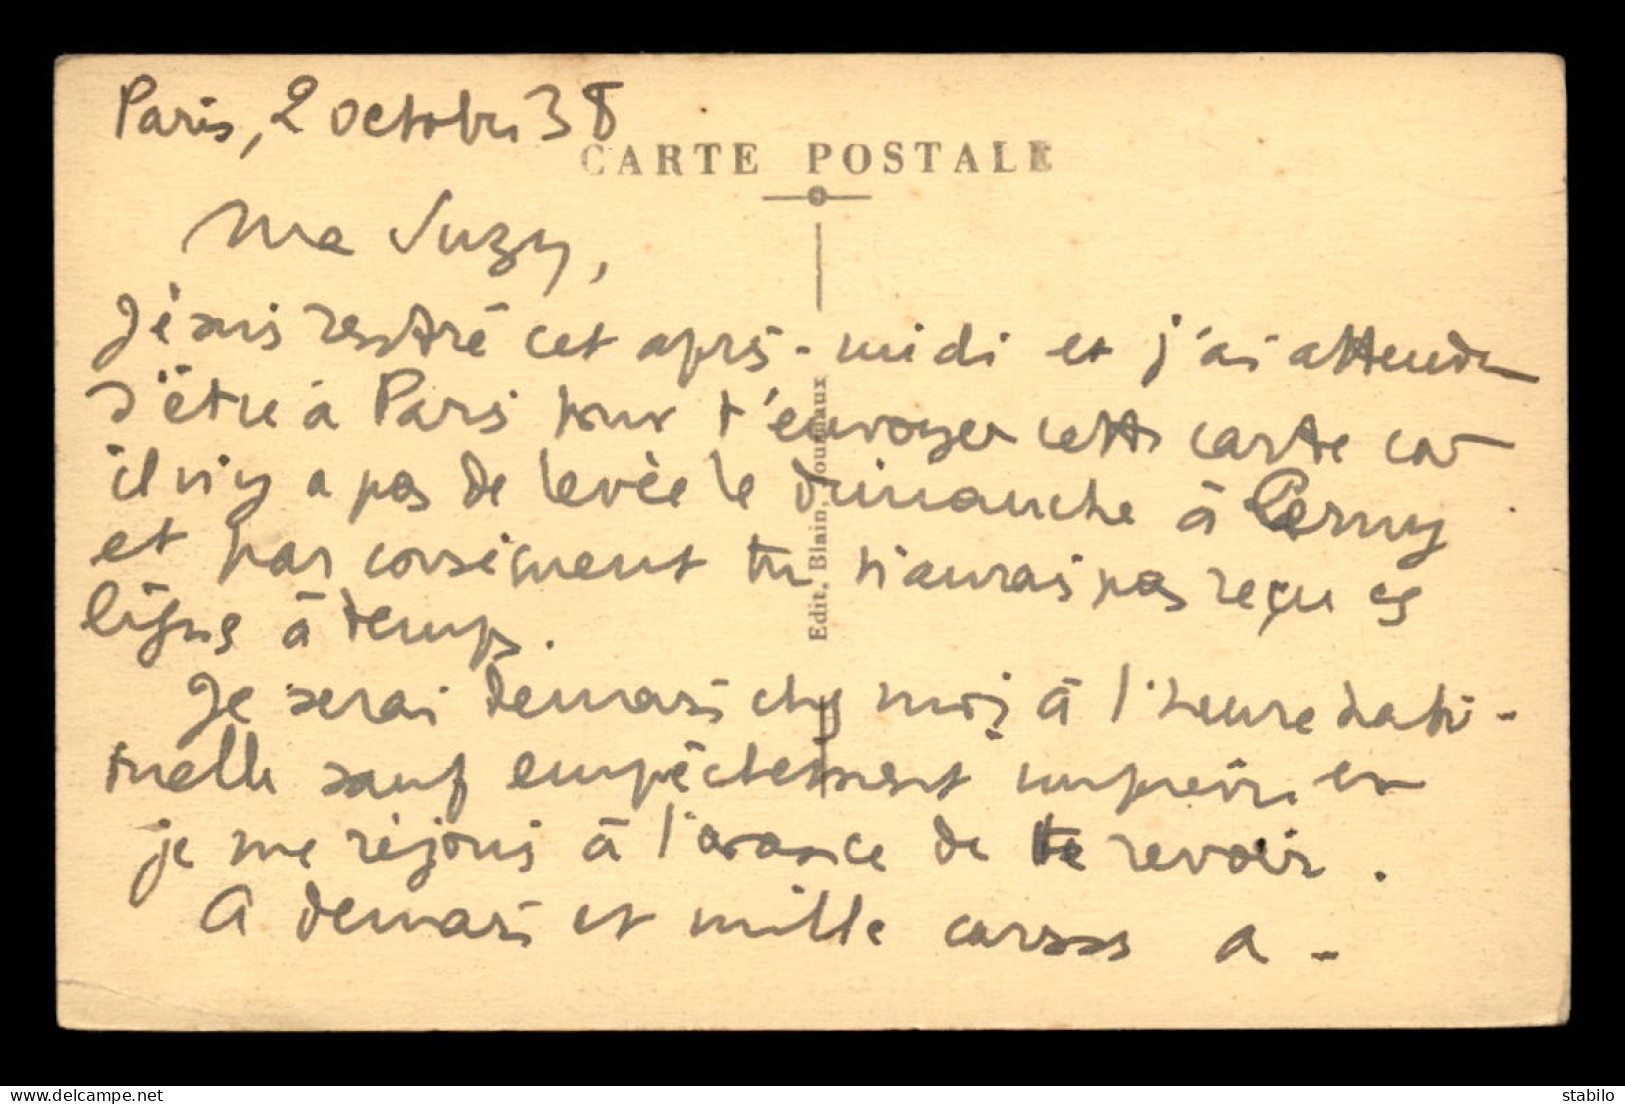 Paris, 2 octobre 38
CARTE POSTALE
Ma Suzy,
Je suis rentré cet après-midi et j'ai attendu
d'être à Paris pour t'envoyer cette carte car
il n'y a pas de levée le dimanche à Cerny
et par conséquent tu n'aurais pas reçu ces
lignes à temps.
Je serai demain chez moi à l'heure habi-
tuelle sauf empêchement imprévu et
je me réjouis à l'avance de te revoir.
A demain et mille caresses A-
Edit. Blain,
delcampe.net
stabilo